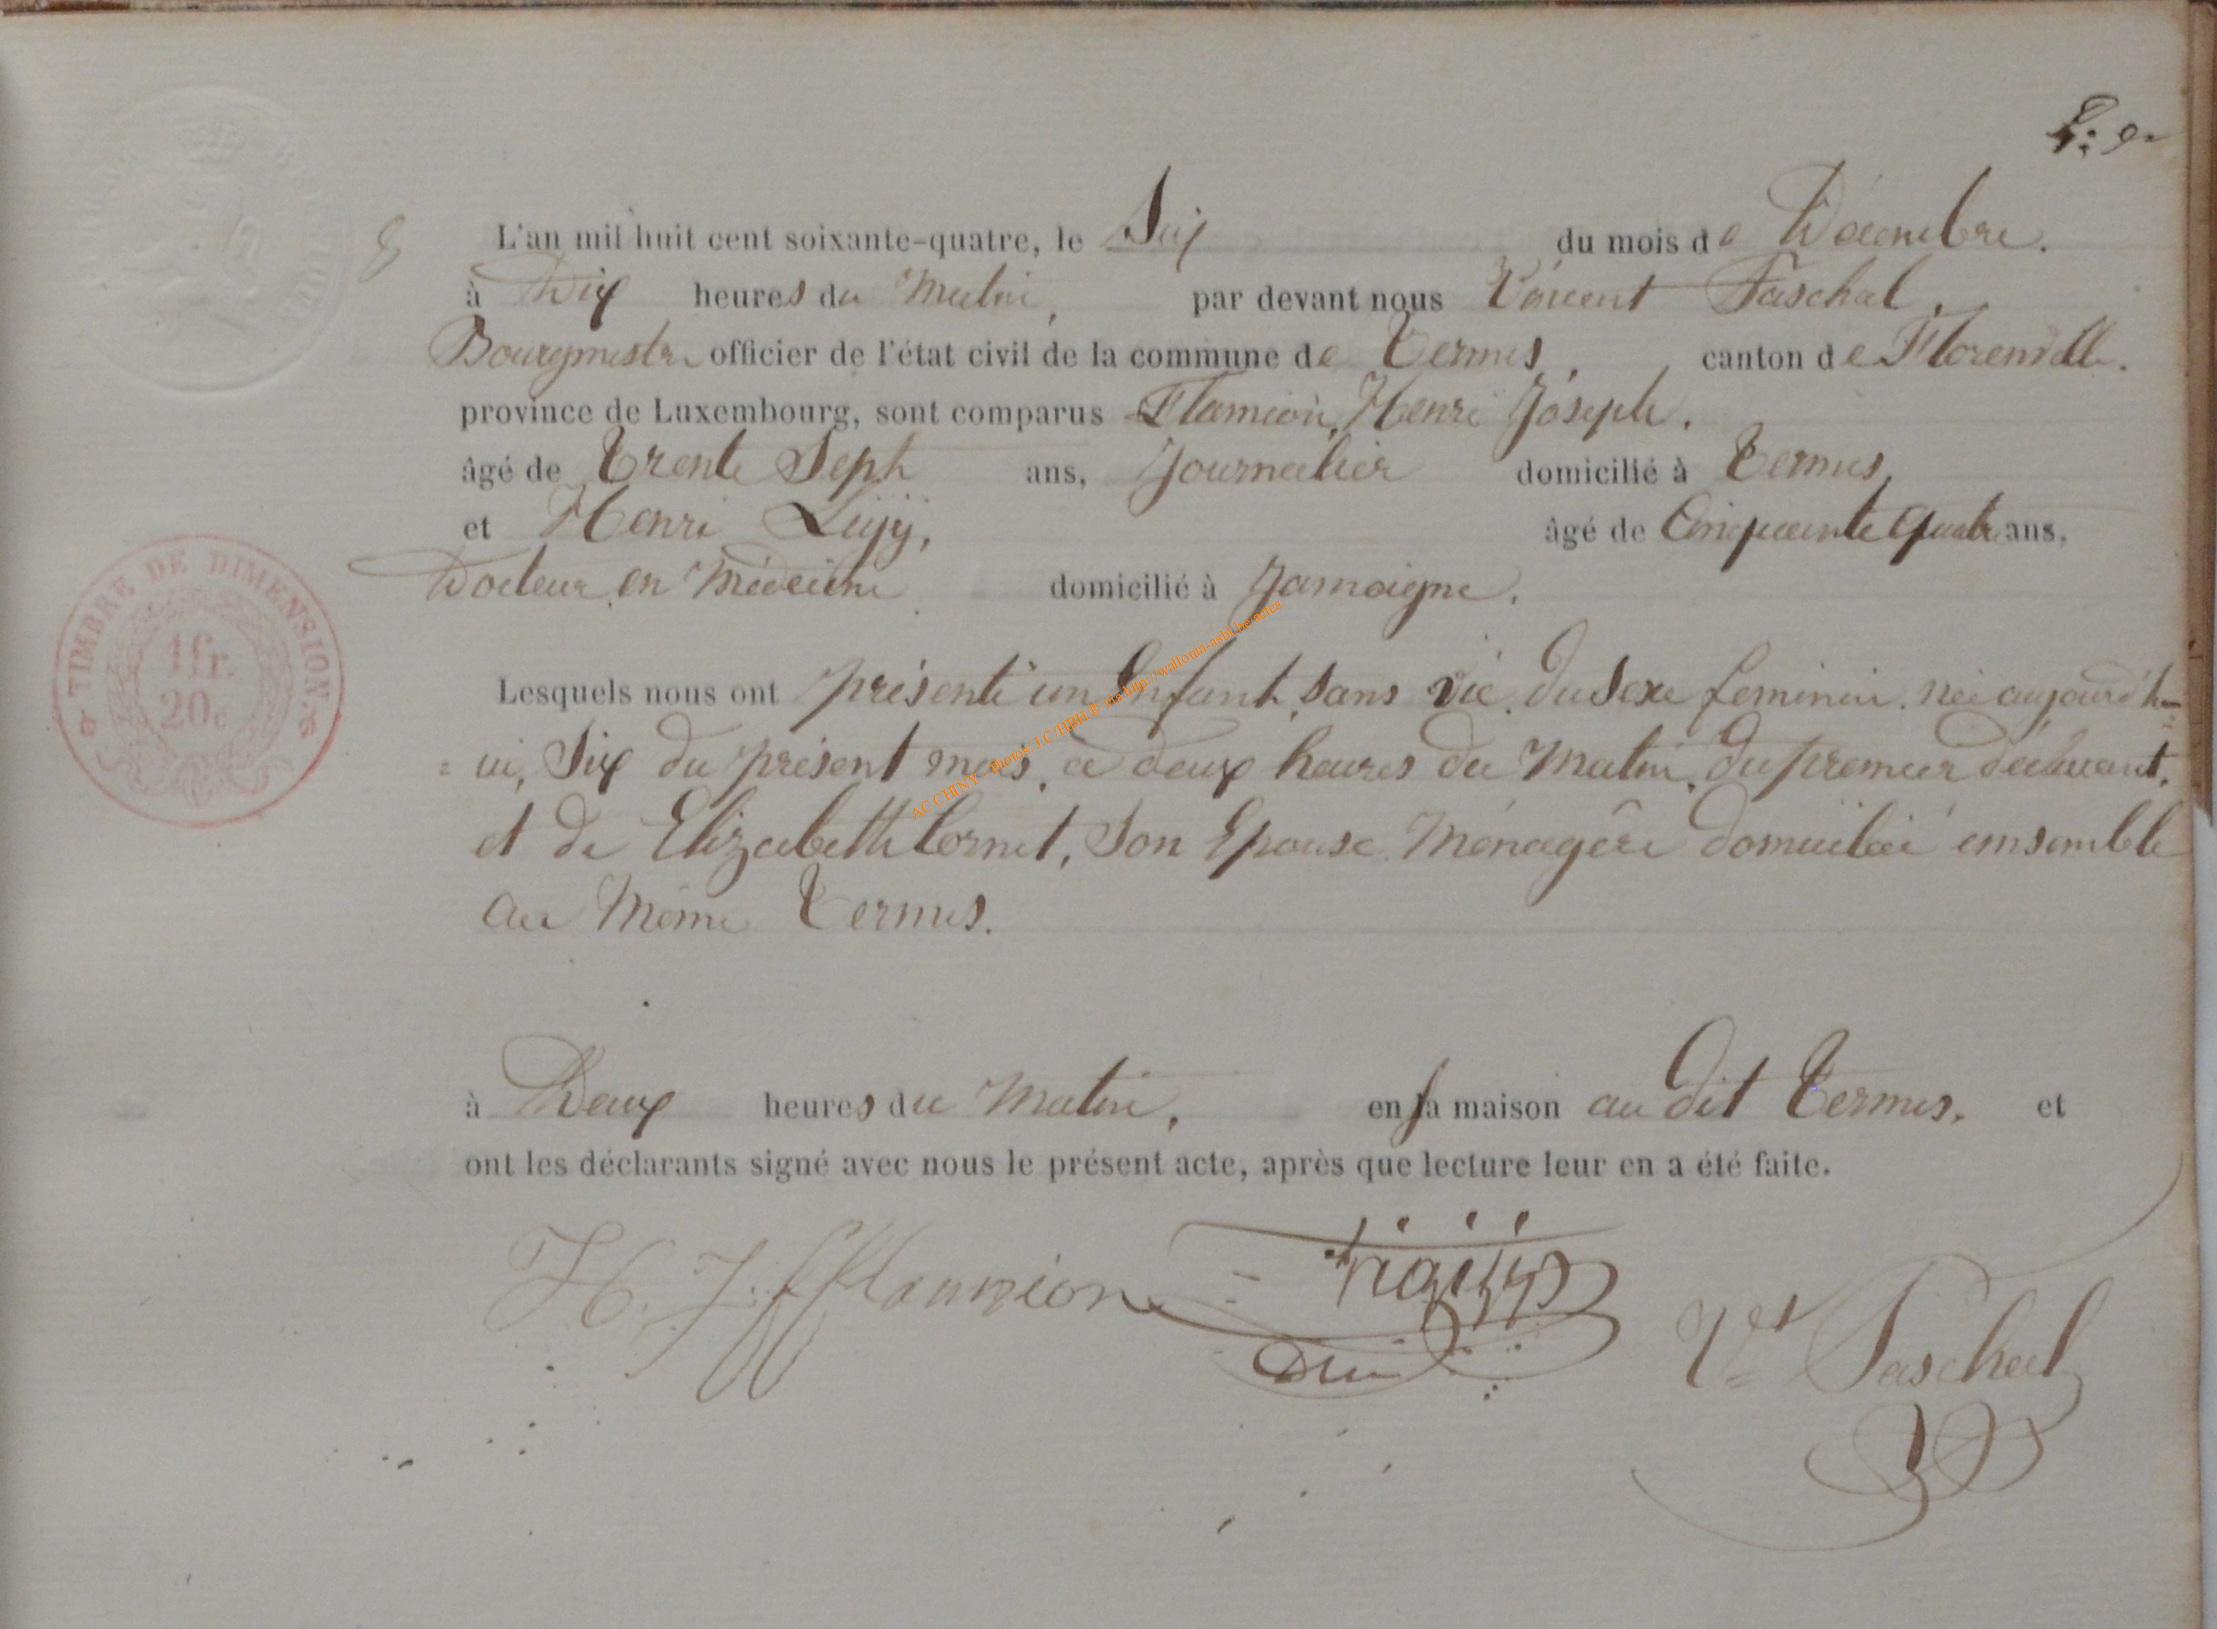 8
L'an mil huit cent soixante-quatre, le Six du mois de Décembre.
à Dix heures du Matin, par devant nous Vincent Paschal,
Bourgmestre officier de l'état civil de la commune de Termes, canton de Florenville.
province de Luxembourg, sont comparus Flamion, Henri Joseph.
âgé de Trente Sept ans, Journalier domicilié à Termes,
et Henri âgé de Cinquante quatre ans,
Docteur en Médecine domicilié à Jamoigne.
TIMBRE DE DIMENSION.
1 fr.
20 c
Lesquels nous ont présenté un Enfant, sans vie, du Sexe feminin, née aujourd'h=
= ui, Six du présent mois, à deux heures du Matin, du premier déclarant,
et de Elizabeth Cornet, Son Epouse Ménagère domiciliée emsemble
au Même Termes.
à Deux heures du Matin, en sa maison au dit Termes. et
ont les déclarants signé avec nous le présent acte, après que lecture leur en a été faite.
H. J. Flamion
Vt Paschal